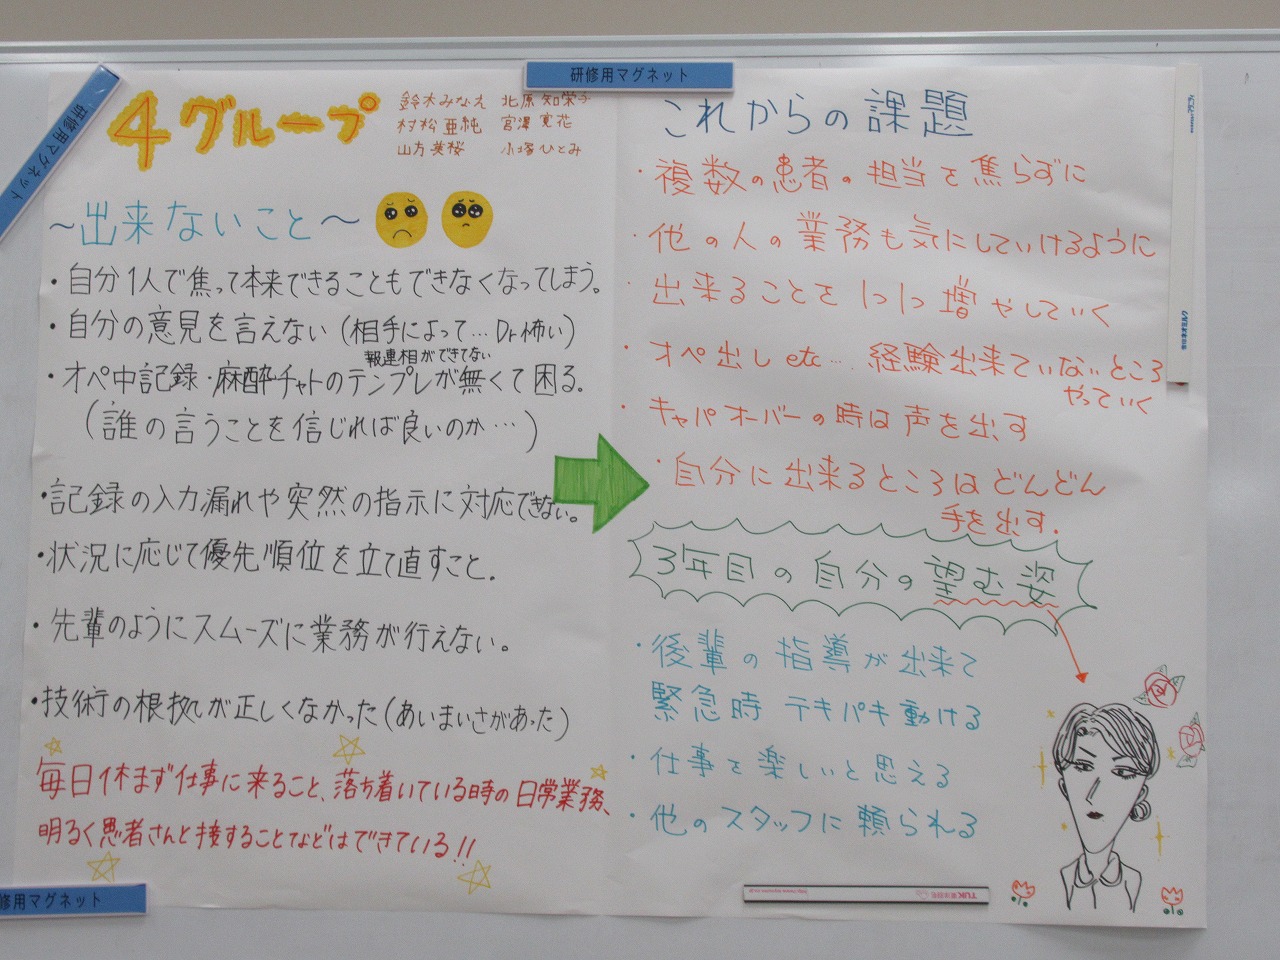 研修用マグネット
研修用マグネット
4グループ
鈴木みなえ 北原知栄子
村松亜純 宮澤寛花
山方美桜 小塚ひとみ
～出来ないこと～
・自分1人で焦って本来できることもできなくなってしまう。
・自分の意見を言えない(相手によって…Dr怖い)
報連相ができてない
・オペ中記録・麻酔チャトのテンプレが無くて困る。
(誰の言うことを信じれば良いのか…)
・記録の入力漏れや突然の指示に対応できない。
・状況に応じて優先順位を立て直すこと。
・先輩のようにスムーズに業務が行えない。
・技術の根拠が正しくなかった(あいまいさがあった)
毎日休まず仕事に来ること、落ち着いている時の日常業務、
明るく患者さんと接することなどはできている!!
修用マグネット
これからの課題
・複数の患者の担当を焦らずに
・他の人の業務も気にしていけるように
・出来ることを1つ1つ増やしていく
・オペ出しetc… 経験出来ていないところ
やっていく
・キャパオーバーの時は声を出す
・自分に出来るところはどんどん
手を出す.
3年目の自分の望む姿
・後輩の指導が出来て
緊急時テキパキ動ける
・仕事を楽しいと思える
・他のスタッフに頼られる